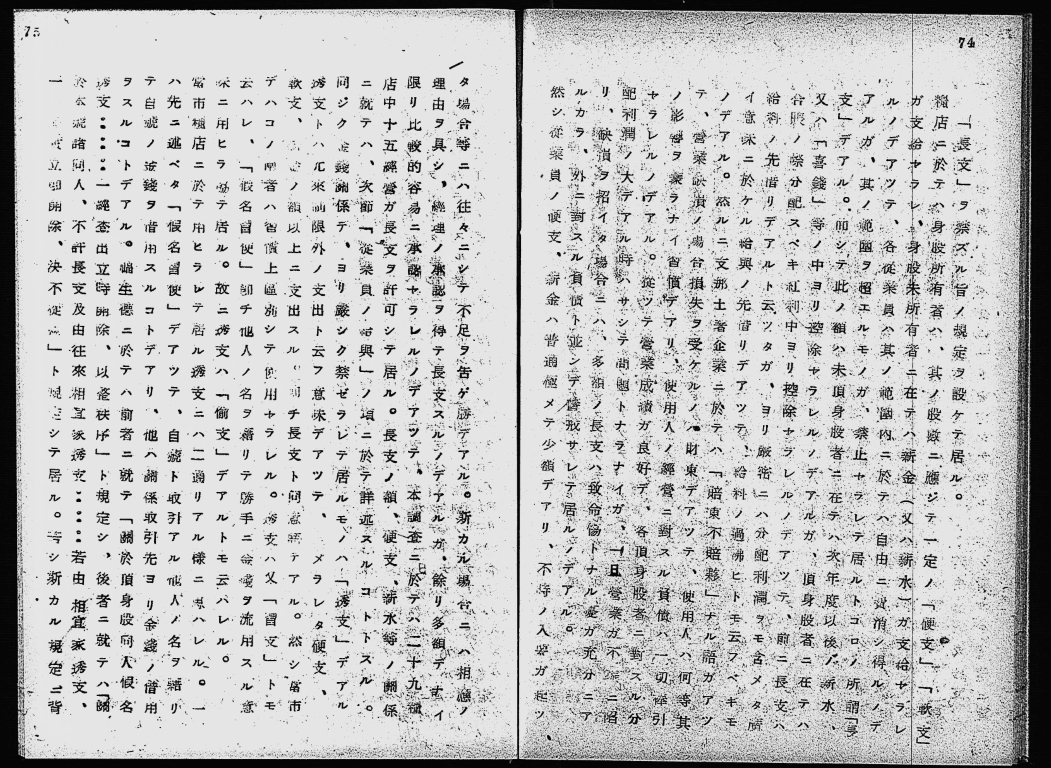 74
「長支」ヲ禁ズル旨ノ規定ヲ設ケテ居ル。
糧店ニ於テハ身股所有者ハ、其ノ股數ニ應ジテ一定ノ「便支」、「軟支」
ガ支給サラレ、身股未所有者ニ在テハ薪金（又ハ薪水）ガ支給サラレ
ルノデアツテ、各從業員ハ其ノ範圍內ニ於テハ自由ニ費消シ得ルノデ
アルガ、其ノ範圍ヲ超エルモノガ、禁止サラレテ居ルトコロノ所謂「長
支」デアル。而シテ此ノ額ハ未頂身股者ニ在テハ次年度以後ノ薪水、
又ハ「喜錢」等ノ中ヨリ控除サラレルノデアルガ、頂身股者ニ在テハ
合賬ノ際分配スベキ紅利中ヨリ控除サラレルノデアツテ、前ニ長支ハ
給料ノ先借リデアルト云ツタガ、ヨリ嚴密ニハ分配利潤ヲモ含メタ廣
イ意味ニ於ケル給與ノ先借リデアツテ、給料ノ過拂ヒトモ云フベキモ
ノデアル。然ルニ支那土著企業ニ於テハ「賠東不賠夥」ナル語ガアツ
テ、營業缺損ノ場合損失ヲ受ケルノハ財東デアツテ、使用人ハ何等其
ノ影響ヲ蒙ラナイ習慣デアリ、使用人ノ經營ニ對スル負債ハ一切牽引
サラレルノデアル。從ツテ營業成績ガ良好デ、各頂身股者ニ對スル分
配利潤ノ大デアル時ハサシテ問題トナラナイガ、一旦營業ガ不
リ、缺損ヲ招イタ場合ニハ、多額ノ長支ハ致命傷トナル虞ガ充分ニア
ルカラ、外ニ對スル負債ト並ンデ警戒サレテ居ルノデアル。
然シ從業員ノ便支、薪金ハ普通極メテ少額デアリ、不時ノ入要ガ起ツ
75
タ場合等ニハ往々ニシテ不足ヲ告ゲ勝デアル。斯カル場合ニハ相應ノ
理由ヲ具シ、經理ノ承認ヲ得テ長支スルノデアルガ、餘リ多額デナイ
限リ比較的容易ニ承認サラレルノデアツテ、本調査ニ於テハ二十九糧
店中十五經營ガ長支ヲ許可シテ居ル。長支ノ額、便支、薪水等ノ關係
ニ就テハ、次節「從業員ノ給與」ノ項ニ於テ詳述スルコトトスル。
同ジク金錢關係デ、ヨリ嚴シク禁ゼラレテ居ルモノハ「透支」デアル
透支トハ元來制限外ノ支出ト云フ意味デアツテ、メラレタ便支、
軟支、ノ額以上ニ支出スル即チ長支ト同意語デアル。然シ當市
デハコノ兩者ハ習慣上區別シテ使用サラレル。透支ハ又「冒支」トモ
云ハレ、「假名冒使」卽チ他人ノ名ヲ藉リテ勝手ニ金錢ヲ流用スル意
味ニ用ヒラレテ居ル。故ニ透支ハ「偷支」デアルトモ云ハレル。
當市糧店ニ於テ用ヒラレテ居ル透支ニハ二通リアル樣ニ思ハレル。一
ハ先ニ述ベタ「假名冒使」デアツテ、自號ト取引アル他人ノ名ヲ藉リ
テ自號ノ金錢ヲ借用スルコトデアリ、他ハ關係取引先ヨリ金錢ノ借用
ヲスルコトデアル。福生德ニ於テハ前者ニ就テ「關於頂身股同人假名
透支……一經查出立時開除、以整秩序」ト規定シ、後者ニ就テハ「關
於本號諸同人、不許長支及由往來相宜家透支……若由相宜家透支、
立卽開除、決不從寬」ト規定シテ居ル。若シ斯カル規定ニ背